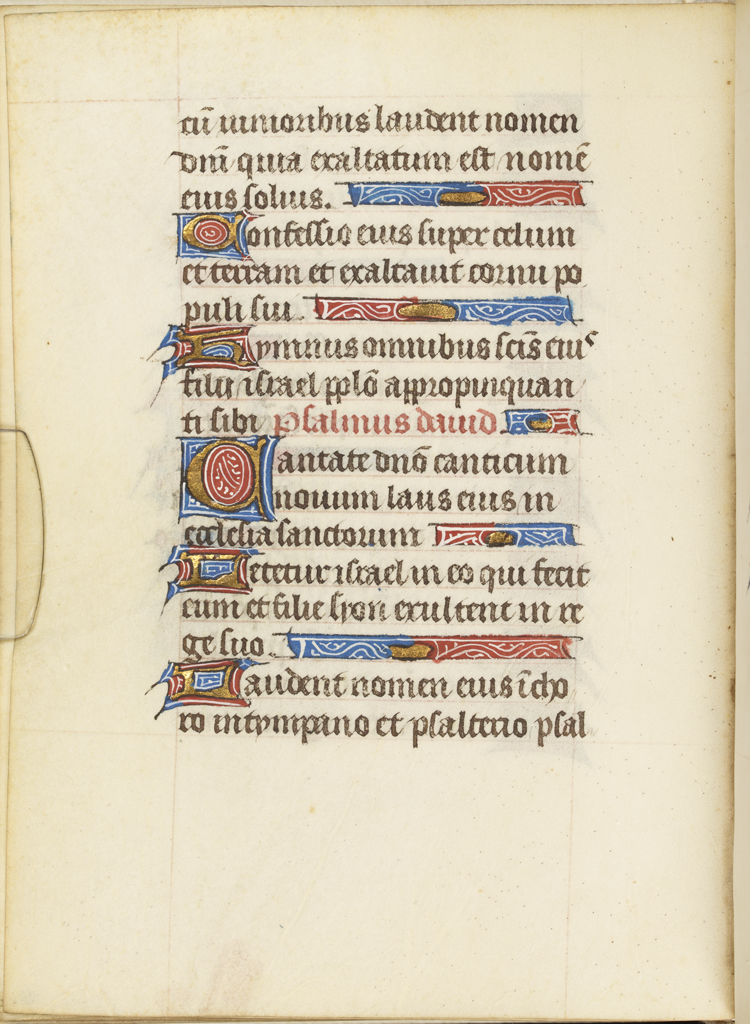 cū iunioribus laudent nomen
dnī quia exaltatum est nomē
eius solius.
Confessio eius super celum
et terram et exaltauit cornu po
puli sui.
Hymnus omnibus scīs eius
filiis israel pplō appropinquan
ti sibi Psalmus dauid
Cantate dnō canticum
nouum laus eius in
ecclesia sanctorum
Letetur israel in eo qui fecit
eum et filie syon exultent in re
ge suo.
Laudent nomen eius ī cho
ro in tympano et psalterio psal